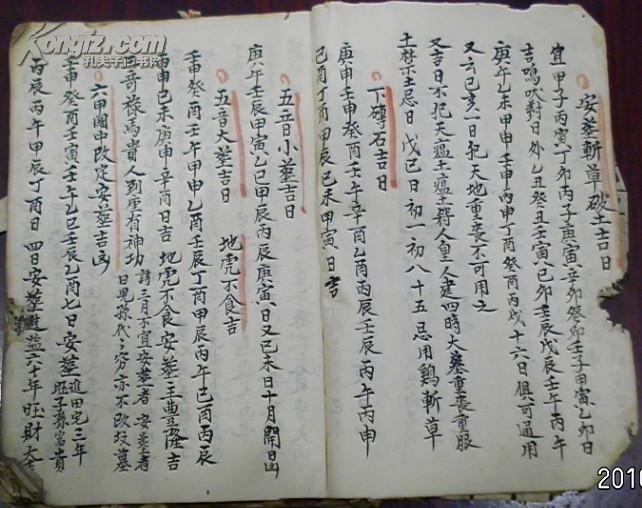 安葬斬草破土吉日
宜甲子丙寅丁卯丙子庚寅辛卯癸卯壬子甲寅乙卯日
吉鳴吠對日外乙丑癸丑壬寅己卯壬辰戊辰壬午丙午
庚午乙未甲申壬申丙申丁酉癸酉丙戌十六日俱可通用
又云己亥一日犯天地重喪不可用之
又吉日不犯天瘟土瘟土錡人皇人建四時大墓重喪重服
土禁土忌日戊巳日初一初八十五忌用鷄斬草
下磚石吉日
庚申壬申癸酉壬午辛酉乙酉丙辰壬辰丙午丙申
己酉丁酉甲辰己未甲寅日吉
五音小葬吉日
庚午壬辰甲寅乙巳甲辰丙辰庚寅日又己未日十月開日凶
五音大葬吉日 地虎不食吉
壬申癸酉壬午甲申乙酉壬辰丁酉甲辰丙午己酉丙辰
丙申己未庚申辛酉日吉地虎不食安葬主豊隆吉
奇祿馬貴人到座有神功
詩三月不宜安葬者安葬者
日見孫代々穷亦不改坟墓
六甲圈中改定安葬吉凶
壬申癸酉壬寅壬午乙巳壬辰乙酉七日安葬進田宅三年
胚子孫富貴
丙辰丙午甲辰丁酉日四日安葬進益六十年旺財大吉
Kongfz.com
孔夫子旧书网
2010